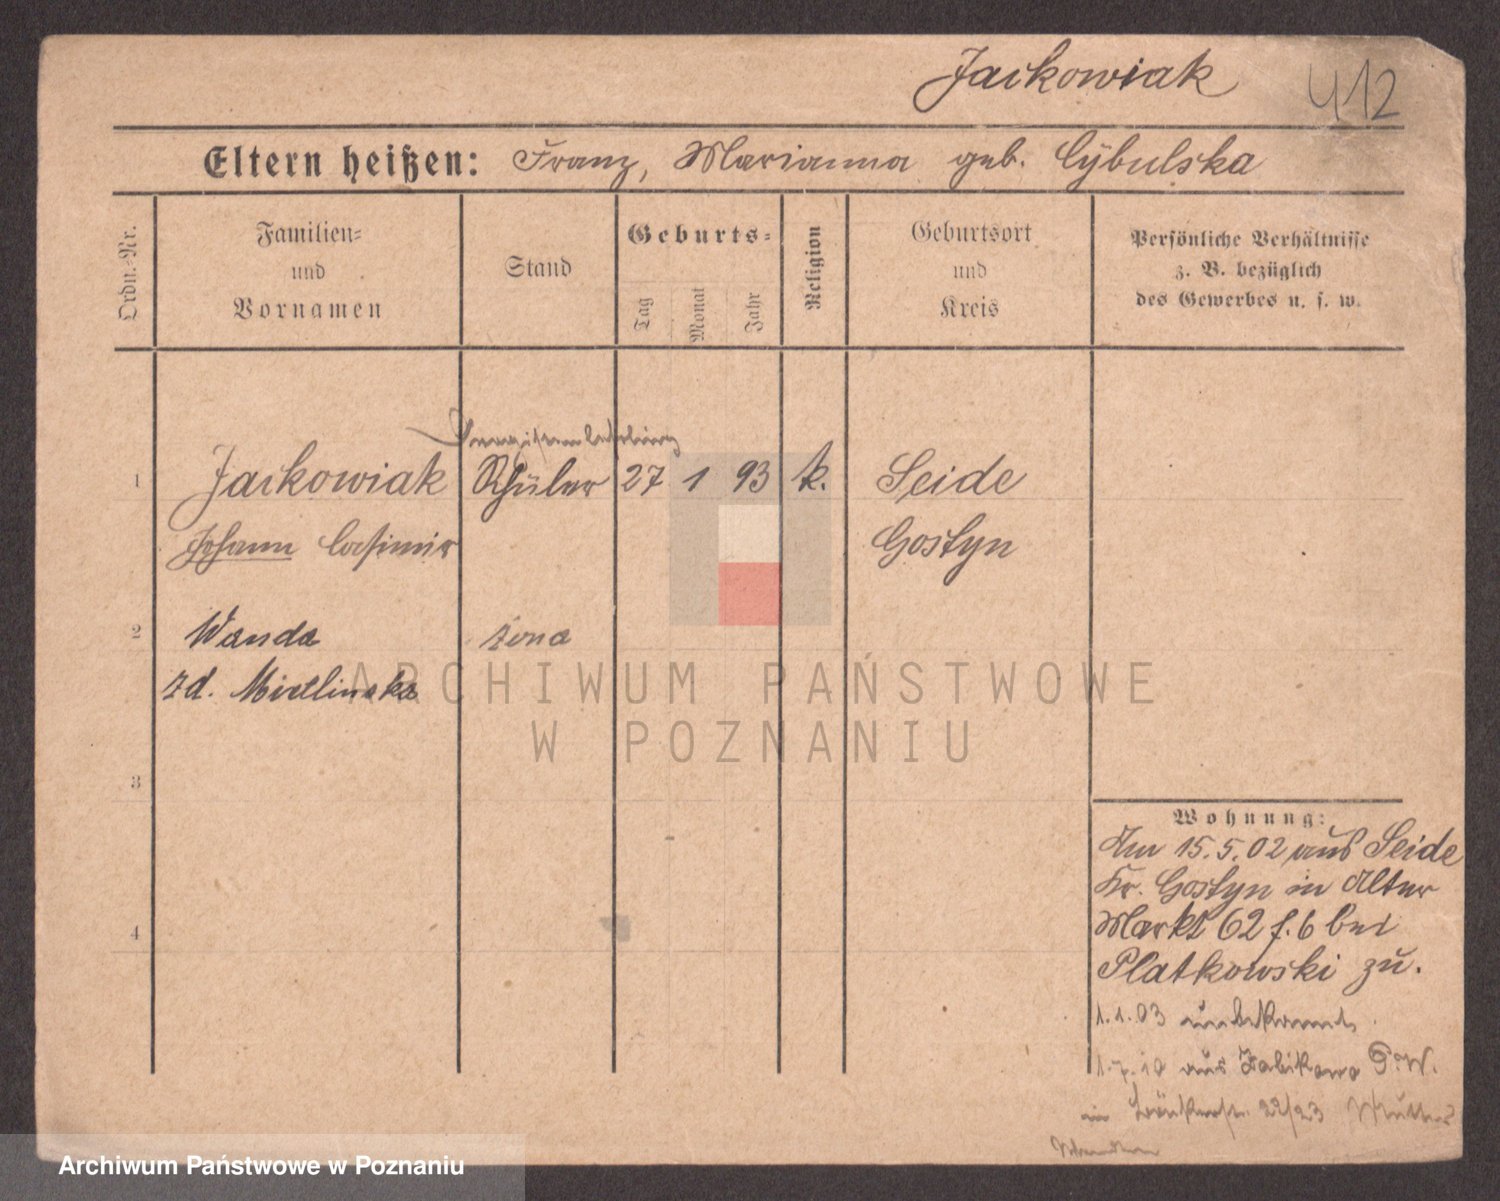 Jackowiak 412
Eltern heißen: Franz, Marianna geb. Cybulska
Ordn.-Nr.
Familien-
und
Vornamen
Stand
Geburts-
Tag
Monat
Jahr
Religion
Geburtsort
und
Kreis
Persönliche Verhältnisse
z. B. bezüglich
des Gewerbes u. s. w.
1 Jackowiak Schüler 27 1 93 k. Seide
Johann Casimir Gostyn
2 Wanda żona
zd. Mietlinska
ARCHIWUM PAŃSTWOWE
W POZNANIU
3
4
Wohnung:
Am 15.5.02 aus Seide
Kr. Gostyn in Alter
Markt 62 f. 6 bei
Platkowski zu.
1.1.03 unbekannt
1.7.10 aus Zabikowo P.W.
in 22/23 Mutter
Archiwum Państwowe w Poznaniu